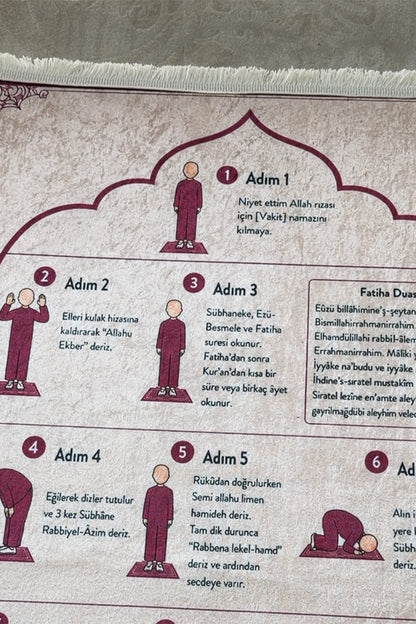 1 Adım 1
Niyet ettim Allah rızası
için [Vakit] namazını
kılmaya.
2 Adım 2
Elleri kulak hizasına
kaldırarak "Allahu
Ekber" deriz.
3 Adım 3
Sübhaneke, Ezü-
Besmele ve Fatiha
suresi okunur.
Fatiha'dan sonra
Kur'an'dan kısa bir
süre veya birkaç âyet
okunur.
Fatiha Duas
Eûzü billâhimine'ş-şeytan
Bismillahirrahmanirrahim.
Elhamdülillahi rabbil-âlem
Errahmanirrahim. Mâliki y
İyyâke na'budu ve iyyâke
İhdine's-sıratel mustakîm
Siratel lezîne en'amte aley
gayrilmağdûbi aleyhim veled
4 Adım 4
Eğilerek dizler tutulur
ve 3 kez Sübhâne
Rabbiyel-Âzim deriz.
5 Adım 5
Rükûdan doğrulurken
Semi allahu limen
hamideh deriz.
Tam dik durunca
"Rabbena lekel-hamd"
deriz ve ardından
secdeye varır.
6 Ad
Alın i
yere k
Sübh
de